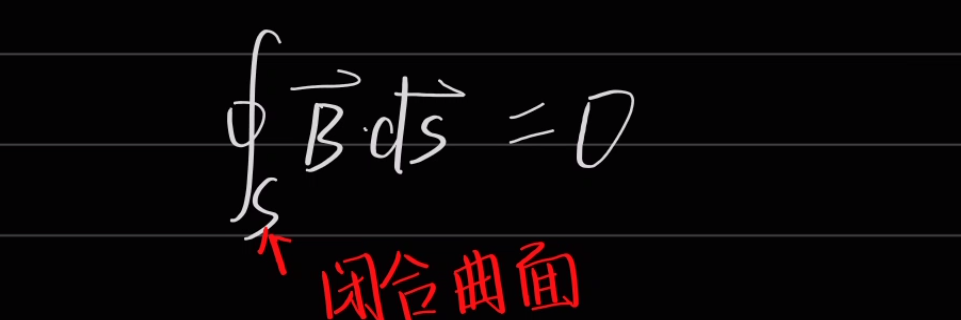 ∮_S B⃗·ds⃗ = 0
↑ 闭合曲面